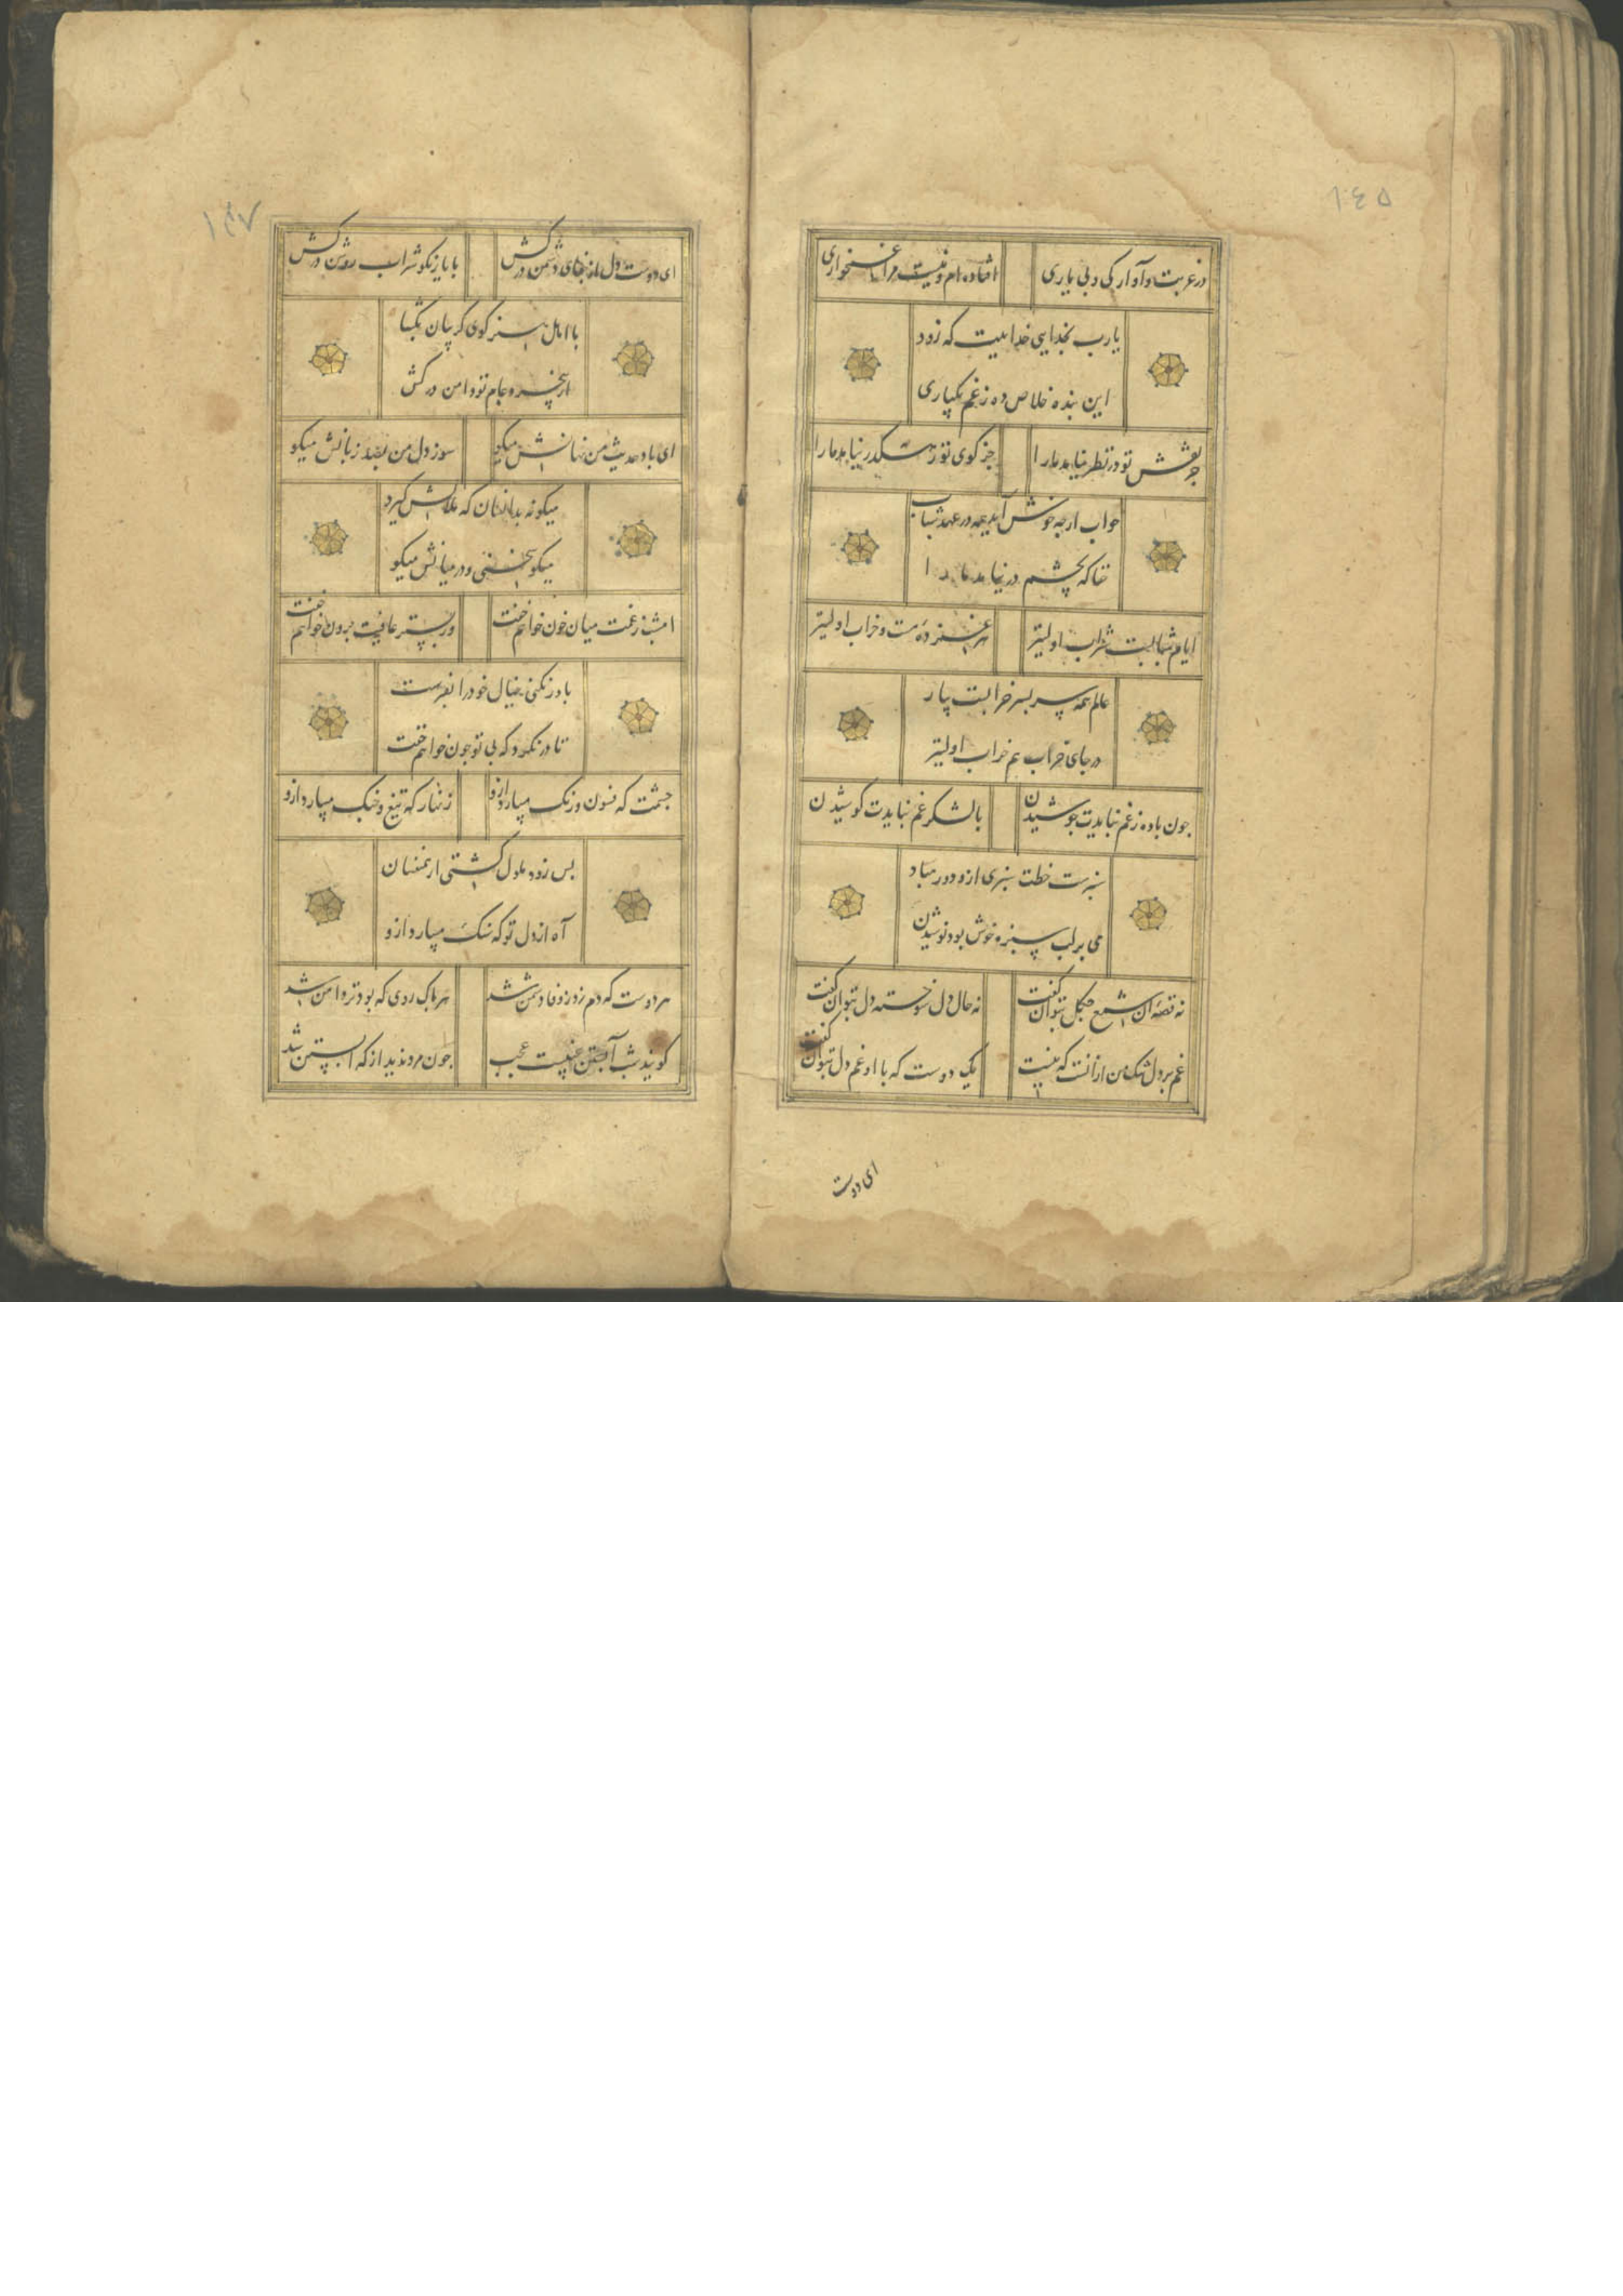 ١٤٥
در غربت و آوارکی و بی یاری
افتاده ام و نیست مرا غمخواری
یارب بخدایی خداییت که زود
این بنده خلاص ده زغم یکباری
جز نقش تو در نظر نیامد ما را
جز کوی تو رهکذر نیامد ما را
خواب ارجه خوش آمد همه در عهد شباب
حقا که بچشم در نیامد ما را
ایام شبابست شراب اولیتر
هر غمزده مست و خراب اولیتر
عالم همه سر بسر خرابست یباب
در جای خراب هم خراب اولیتر
جون باده زغم نبایدت جوشیدن
با لشکر غم نبایدت کوشیدن
سبزست خطت سبزی ازو دور مباد
می بر لب سبزه خوش بود نوشیدن
نه قصه ان شمع جکل بتوان کفت
نه حال دل سوخته دل بتوان کفت
غم بر دل تنک من ازانست که نیست
یک دوست که با او غم دل بتوان کفت
ای دوست
١٤٧
ای دوست دل از جفای دشمن درکش
با یار نکو شراب روشن درکش
با اهل هنر کوی کریبان بکشا
وز بیخبر و عام تو دامن درکش
ای باد حدیث من نهانش میکو
سوز دل من بصد زبانش میکو
میکو نه بدانسان که ملالش کیرد
میکو سخنی و در میانش میکو
امشب زغمت میان خون خواهم خفت
وز بستر عافیت برون خواهم خفت
باور نکنی خیال خود را بفرست
تا در نکرد که بی تو جون خواهم خفت
جشمت که فسون و رنک میبارد ازو
زنهار که تیغ و جنک میبارد ازو
بس زود ملول کشتی از همنفسان
آه از دل تو که سنک میبارد ازو
هر دوست که دم زد زوفا دشمن شد
هر پاک روی که بود تر دامن شد
کویند شب آبستن غیبست عجب
جون مرد ندید از که ابستن شد